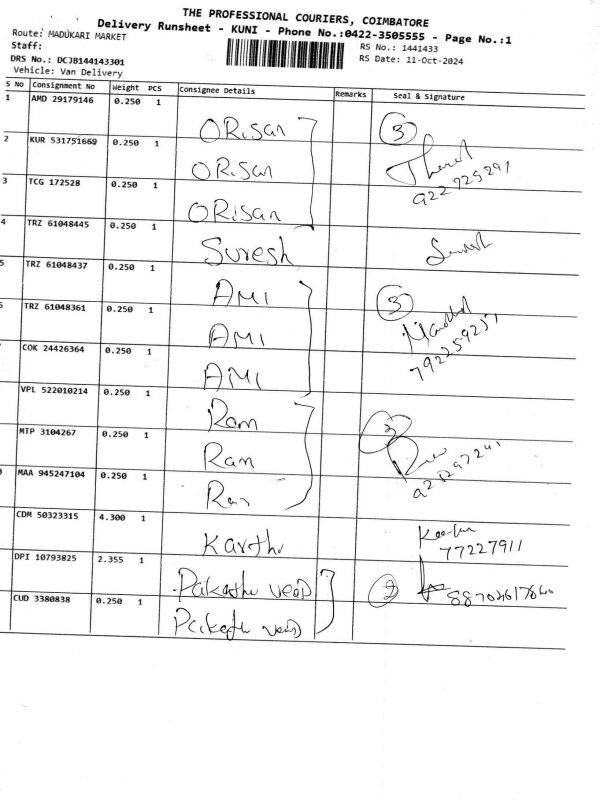 THE PROFESSIONAL COURIERS, COIMBATORE
Delivery Runsheet - KUNI - Phone No.:0422-3505555 - Page No.:1
Route: MADUKARI MARKET
RS No.: 1441433
Staff:
RS Date: 11-Oct-2024
DRS No.: DCJB144143301
Vehicle: Van Delivery
S No Consignment No Weight PCS Consignee Details Remarks Seal & Signature
1 AMD 29179146 0.250 1 ORiSan 3
2 KUR 531751669 0.250 1 ORiSan
3 TCG 172528 0.250 1 ORiSan
4 TRZ 61048445 0.250 1 Suresh
5 TRZ 61048437 0.250 1 AMI 3
TRZ 61048361 0.250 1 AMI
COK 24426364 0.250 1 AMI
VPL 522010214 0.250 1 Ram
MTP 3104267 0.250 1 Ram
MAA 945247104 0.250 1 Ram
CDM 50323315 4.300 1 77227911
DPI 10793825 2.355 1 2
CUD 3380838 0.250 1